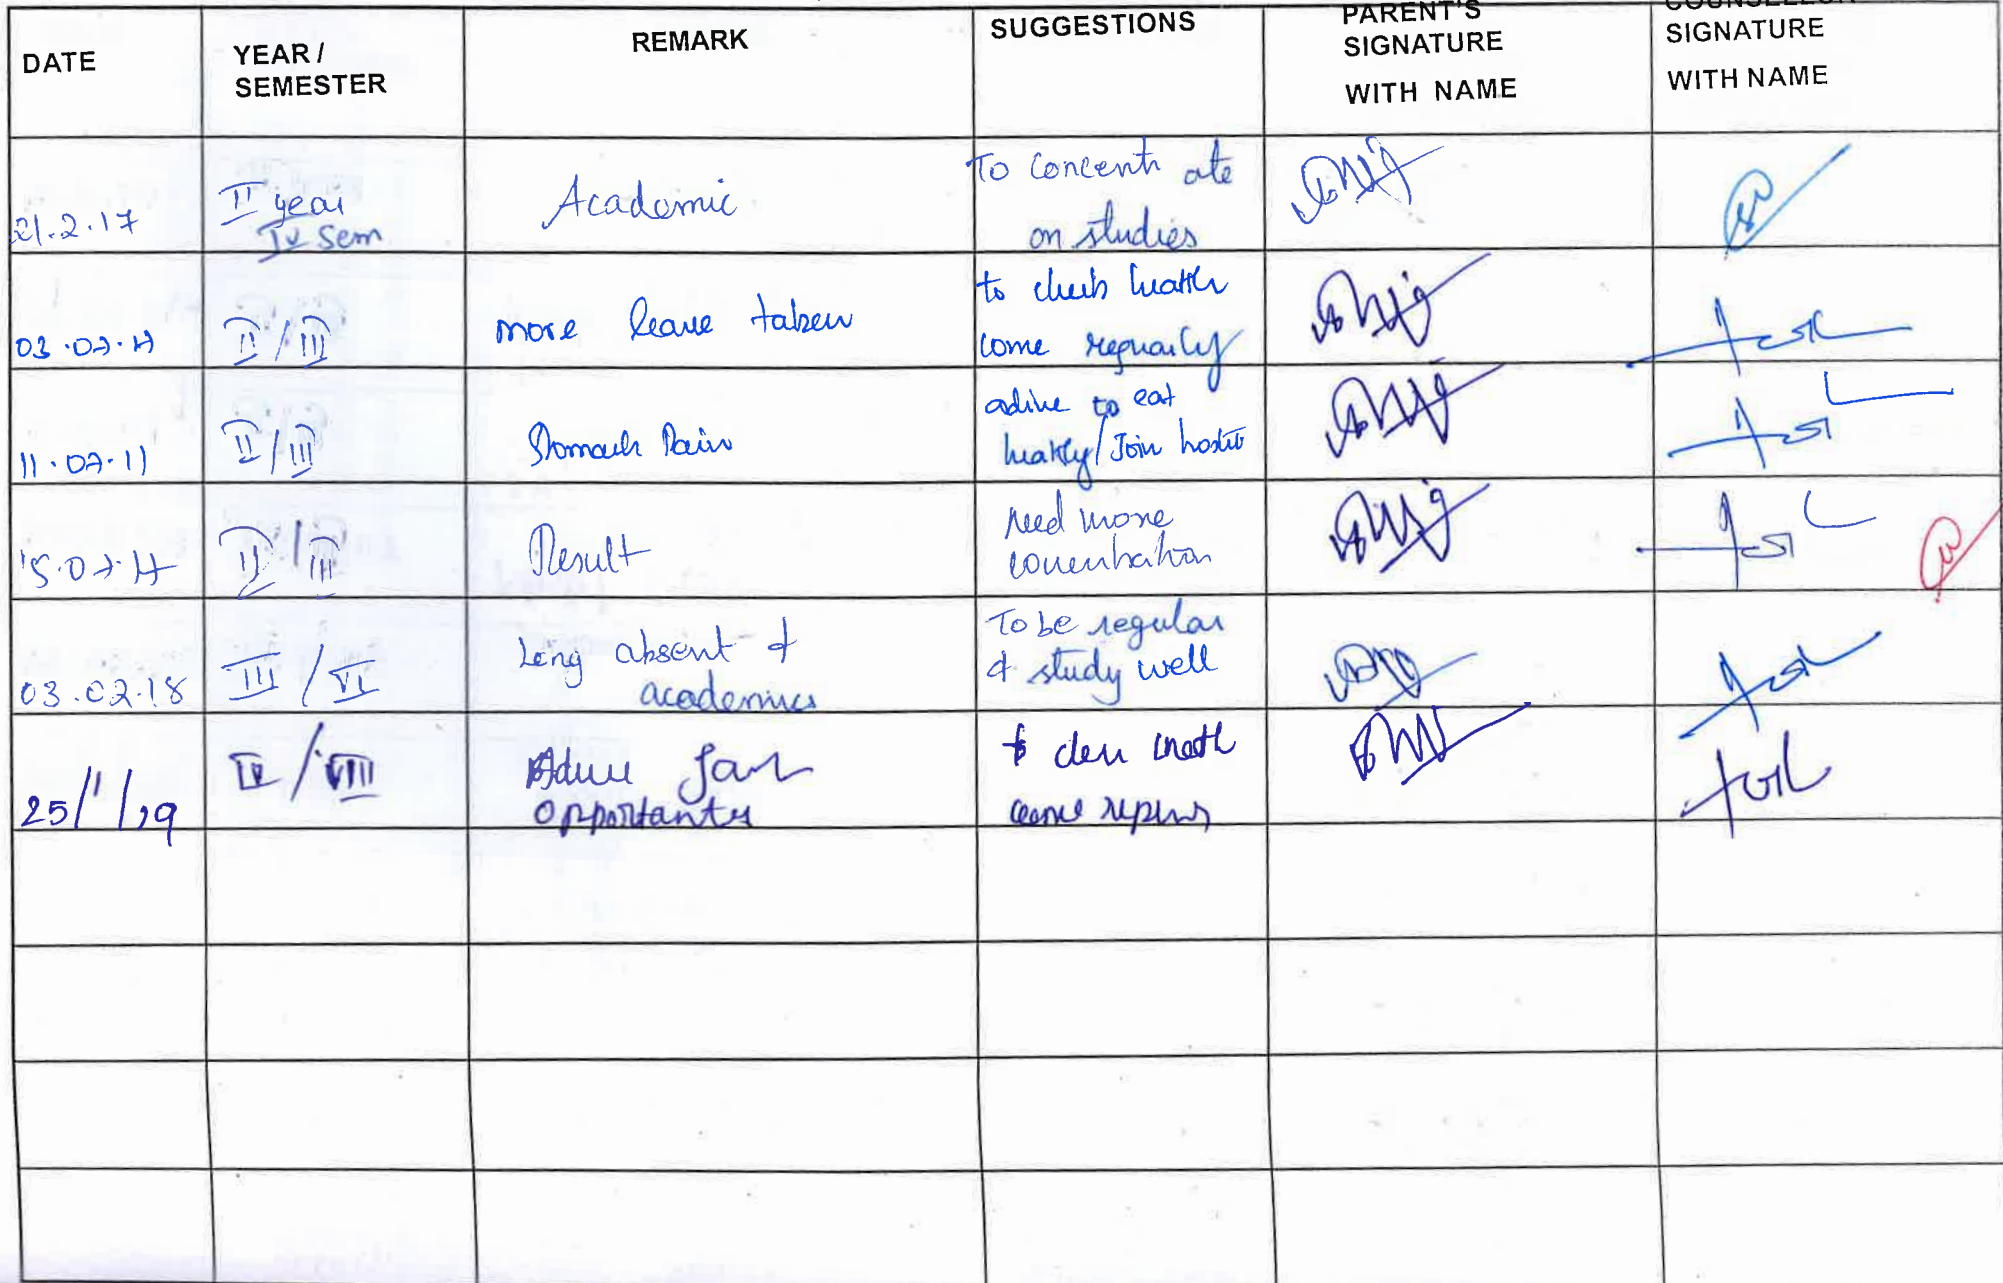 DATE
YEAR /
SEMESTER
REMARK
SUGGESTIONS
PARENT'S
SIGNATURE
WITH NAME
COUNSELLOR
SIGNATURE
WITH NAME
21.2.17
II year
IV Sem
Academic
To Concent ate
on studies
03.07.17
II / III
more leave taken
to check health
come regularly
II / III
Stomach Pain
to eat
healthy / Join hostel
II / III
Result
need more
concentration
03.02.18
III / VI
Long absent &
academics
To be regular
& study well
25/1/19
IV / VIII